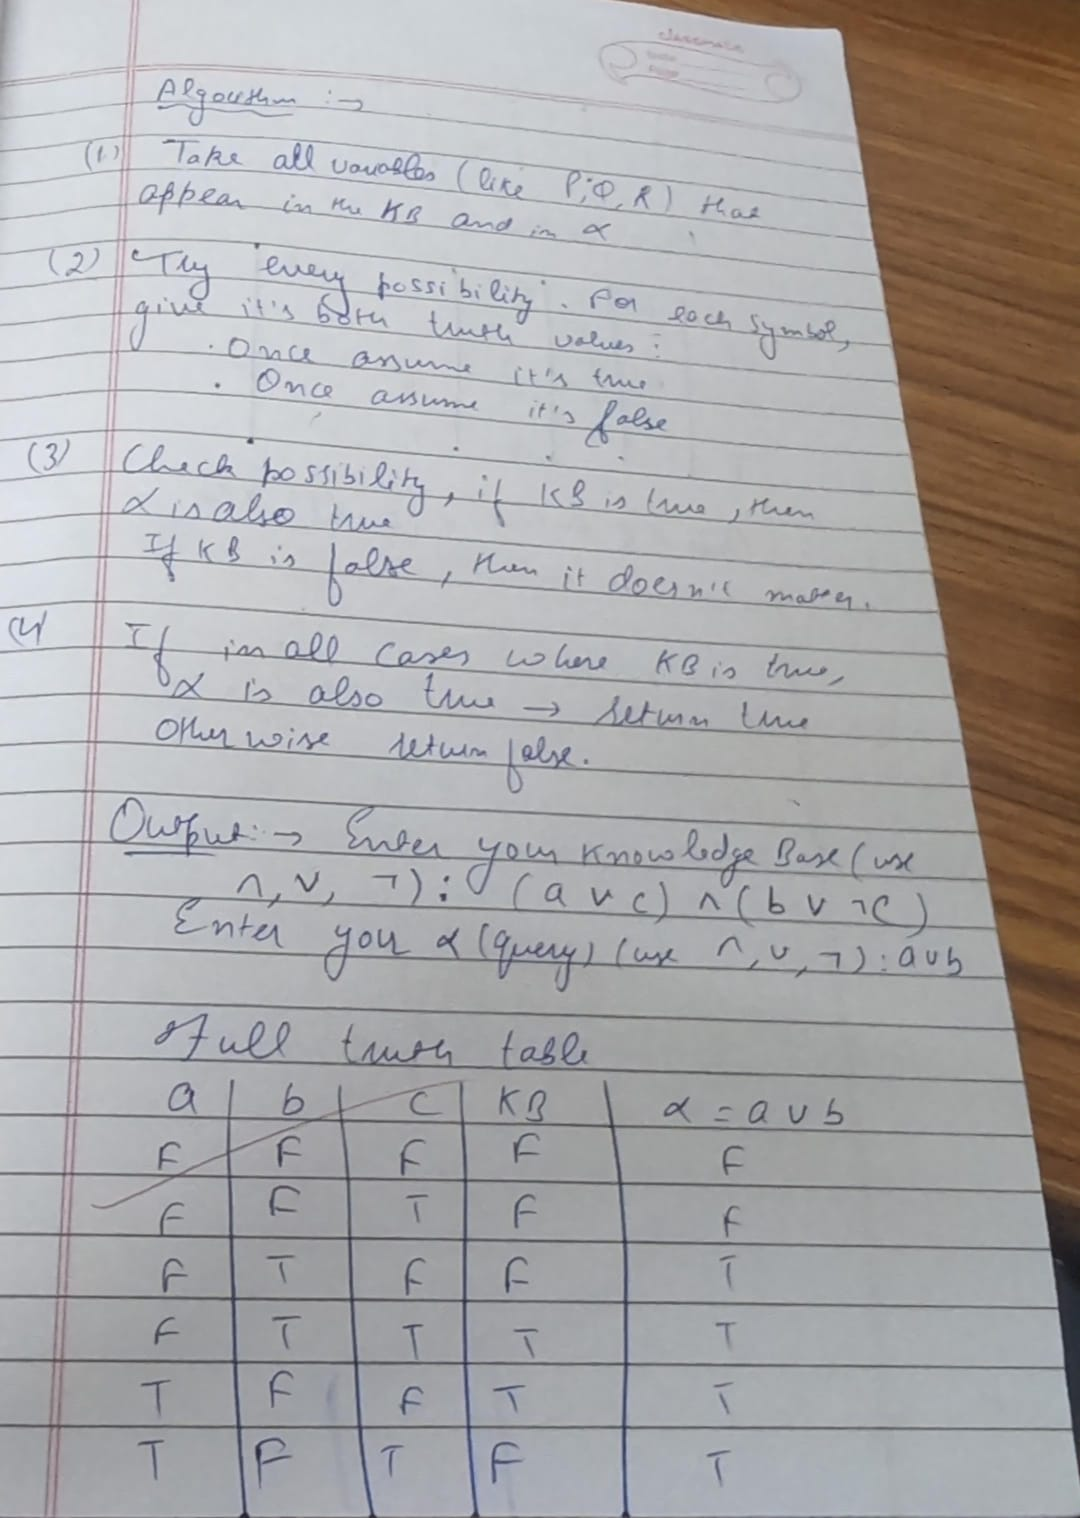 classmate
Date
Page
Algorithm :→
(1) Take all variables (like P,Q,R) that
appear in the KB and in α
(2) Try every possibility. For each symbol,
give it's both truth values:
. Once assume it's true
. Once assume it's false
(3) Check possibility, if KB is true, then
α is also true
If KB is false, then it doesn't matter.
(4) If in all cases where KB is true,
α is also true → return true
Otherwise return false.
Output:→ Enter your Knowledge Base (use
∧, ∨, ¬): (a ∨ c) ∧ (b ∨ ¬c)
Enter your α (query) (use ∧, ∨, ¬): a∨b
Full truth table
a | b | c | KB | α = a ∨ b
F | F | F | F | F
F | F | T | F | F
F | T | F | F | T
F | T | T | T | T
T | F | F | T | T
T | F | T | F | T